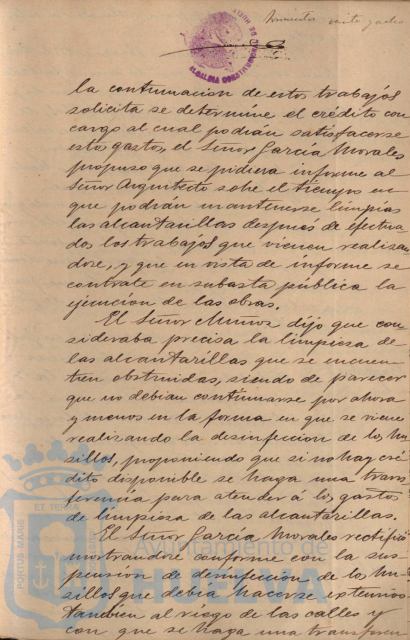 la continuacion de estos trabajos
solicita se determine el crédito con
cargo al cual podrán satisfacerse
estos gastos, el Señor García Morales
propuso que se pidiera informe al
Señor Arquitecto sobre el tiempo en
que podrán mantenerse limpias
las alcantarillas despues de efectua
dos los trabajos que vienen realizan
dose, y que en vista de informe se
contrate en subasta pública la
ejecucion de las obras.
El Señor Muñoz dijo que con
sideraba precisa la limpieza de
las alcantarillas que se encuen
tren obstruidas, siendo de parecer
que no debian continuarse por ahora
y menos en la forma en que se viene
realizando la desinfeccion de los hu
sillos, proponiendo que si no hay cré
dito disponible se haga una trans
ferencia para atender á los gastos
de limpieza de las alcantarillas.
El Señor García Morales rectificó
mostrandose conforme con la sus
pensión de desinfeccion de los hu
sillos que debia hacerse extensiva
tambien al riego de las calles y
con que se haga una transferen
PORTUS MARIS
ET TERRÆ
Ayuntamiento de
HUELVA